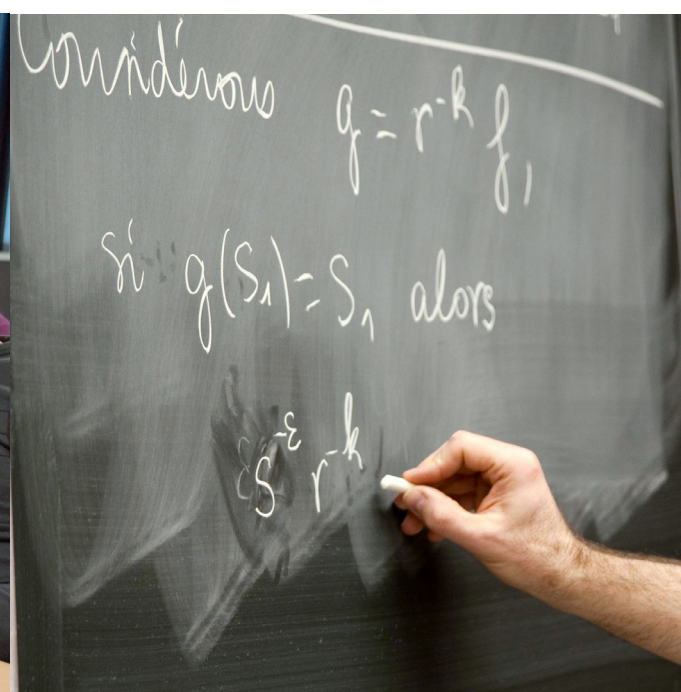 Considérons g = r⁻ᵏ f,
si g(S₁) = S₁ alors
s⁻ᵋ r⁻ᵏ